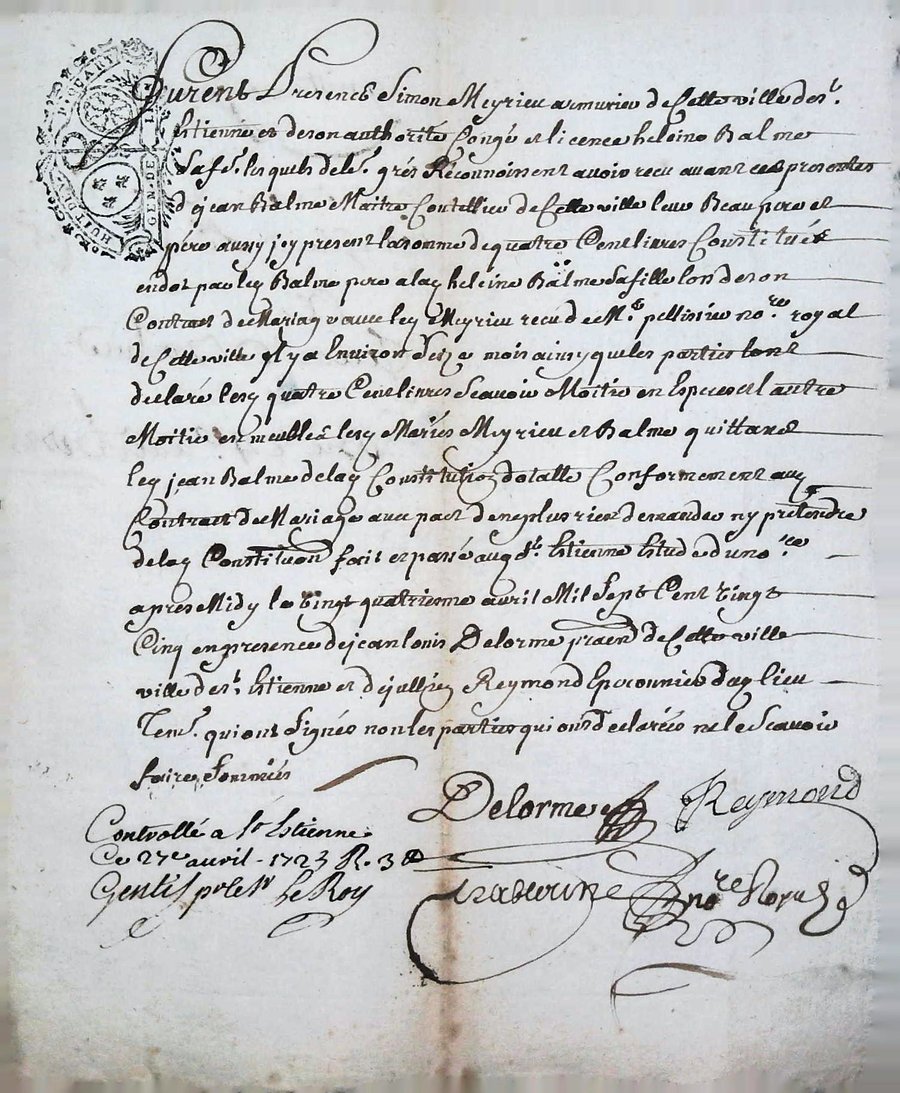 HUIT DEN. LE QUART
GEN. DE L
Furent Presents Simon Meyrieu armurier de Cette ville de st.
Estienne et de son authorité Congé et licence heleine Balme
Safe. lesquels de le. grés Reconnoissent avoir recu avant ces presentes
de jean Balme Maitre Coutellier de Cette ville leur Beau pere et
pére aussy icy present la somme de quatre Cent livres Constituée
en dot par ley Balme pere a lay heleine Balme Sa fille lors de son
Contrat de Mariage avec ley Meyrieu recu de Me. pellissier nore. royal
de Cette ville il y a Environ seize mois ainsy que les parties l'ont
declaré lesq quatre Cent livres Scavoir Moitié en Especes et l'autre
Moitié en meubles lesq Mariés Meyrieu et Balme quittant
ley jean Balme de lay Constitution dotalle Conformement aux
Contract de Mariage avec pact de ne plus rien demander ny prétendre
de lay Constituon fait et passé auq St. Estienne Estude du nore.
apres Midy le Vingt quatrieme avril Mil Sept Cent Vingt
Cinq en presence de jean Louis Delorme pratn de Cette ville
ville de st. Estienne et de Reymond Eperonnier daq lieu
Tem. qui ont Signés non les parties qui ont declarées ne le Scavoir
faire Sommées
Delorme Reymond
Controllé a St Estienne
Ce 27e avril 1725 R.
Gentil pr le Sr Le Roy
nore Royal